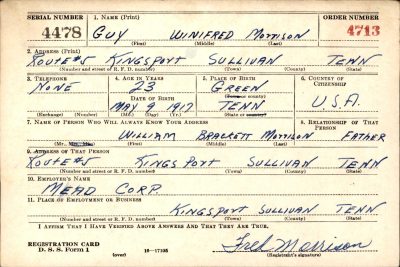 SERIAL NUMBER 1. NAME (Print) ORDER NUMBER
4478 GUY WINIFRED MORRISON 4713
(First) (Middle) (Last)
2. ADDRESS (Print)
ROUTE #5 KINGSPORT SULLIVAN TENN
(Number and street or R. F. D. number) (Town) (County) (State)
3. TELEPHONE 4. AGE IN YEARS 5. PLACE OF BIRTH 6. COUNTRY OF CITIZENSHIP
NONE 23 GREEN U.S.A.
DATE OF BIRTH (Town or county)
MAY 9 1917 TENN
(Exchange) (Number) (Mo.) (Day) (Yr.) (State or country)
7. NAME OF PERSON WHO WILL ALWAYS KNOW YOUR ADDRESS 8. RELATIONSHIP OF THAT PERSON
WILLIAM BRACKETT MORRISON FATHER
(Mr., Mrs., Miss) (First) (Middle) (Last)
9. ADDRESS OF THAT PERSON
ROUTE #5 KINGSPORT SULLIVAN TENN
(Number and street or R. F. D. number) (Town) (County) (State)
10. EMPLOYER'S NAME
MEAD CORP.
11. PLACE OF EMPLOYMENT OR BUSINESS
KINGSPORT SULLIVAN TENN
(Number and street or R. F. D. number) (Town) (County) (State)
I AFFIRM THAT I HAVE VERIFIED ABOVE ANSWERS AND THAT THEY ARE TRUE.
REGISTRATION CARD
D. S. S. Form 1 (over) 16—17105 Fred Morrison
(Registrant's signature)